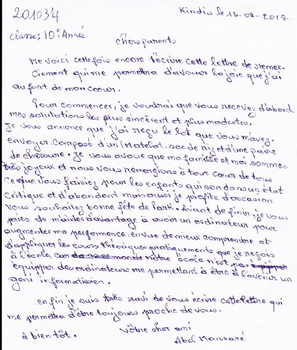 201034
Kindia le 16-08-2017
Classe: 10e Année
Chers parents
Me voici cette fois encore t'écrire cette lettre de remer-
ciement qui me permettra d'avouer la joie que j'ai
au fond de mon cœur.
Pour commencer, je voudrai que vous receviez d'abord
mes salutations les plus sincèrent et plus modestes.
Je vous annonce que j'ai reçu le lot que vous m'avez
envoyé. Composé d'un Matelat. sac de riz et d'une paire
de chaussure. Je vous avoue que ma famille et moi sommes
très joyeux et nous vous remercions à tout cœur de tous
ce que vous faisiez pour les enfants qui son dans un état
critique et d'abandont mais aussi je profite d'occasion
vous souhaitez bonne fête de Noël. Avant de finir je vous
pries de m'aidé d'avantage à avoir un ordinateur pour
augmenter ma performence. envie de mieux comprendre et
d'appliquer les cours théoriques pratiquements que je reçois
à l'école, notre école n'est pas
équipper des ordinateurs me permettant à être à l'avenir un
géni informaticien.
En fin je suis ravi de vous écrire cette lettre qui
me permettra d'être toujours proche de vous.
à bien tôt. Vôtre cher ami
Abel Mansaré